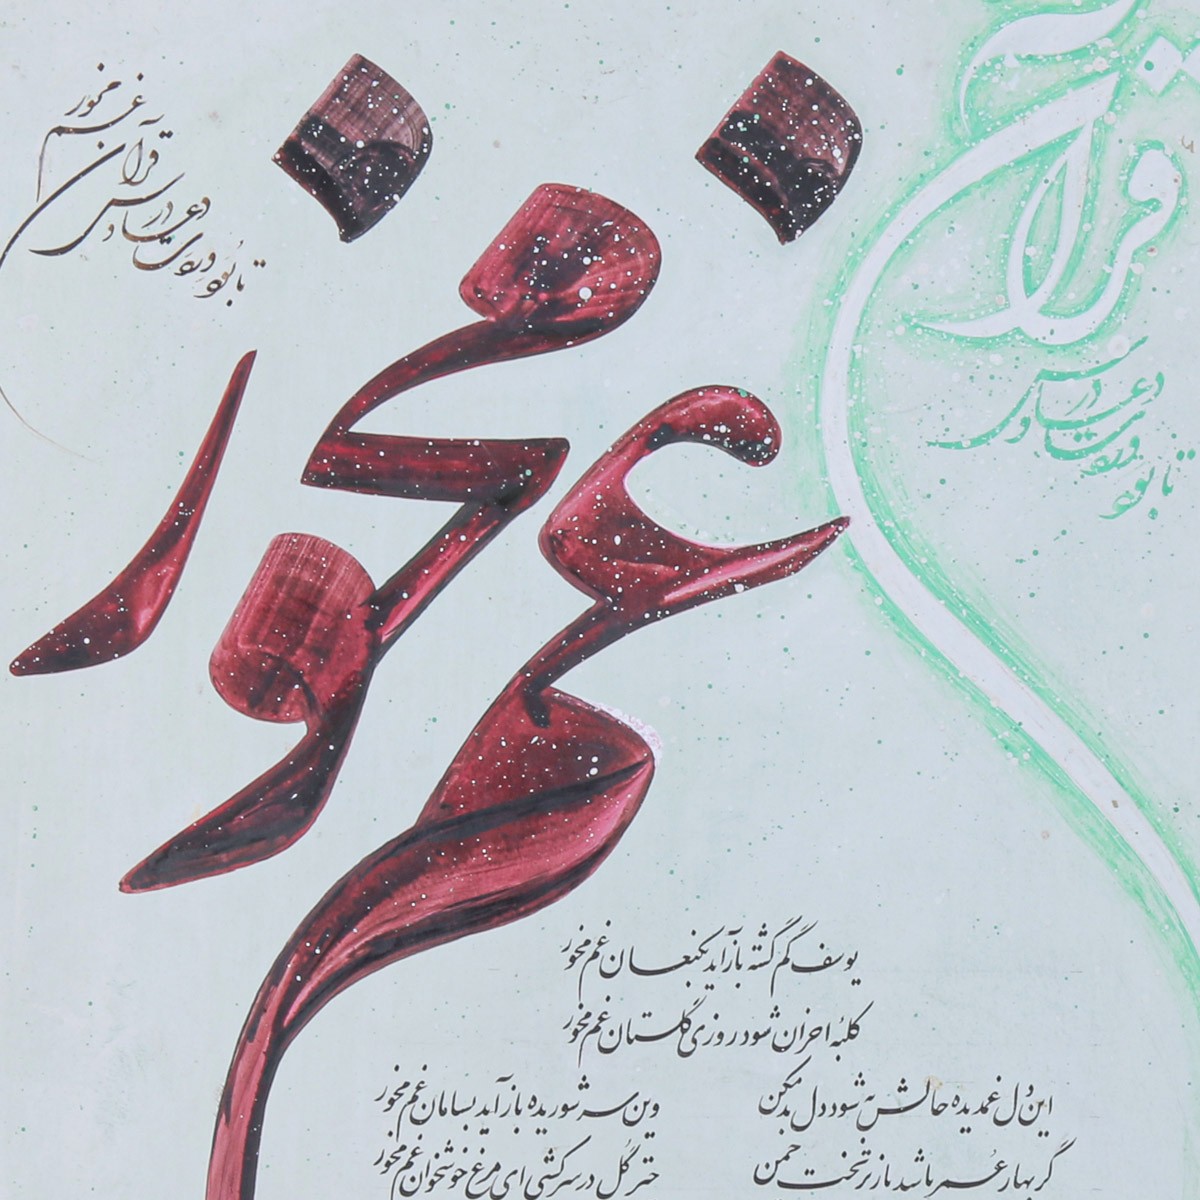 قرآن
تا بود وردت دعا و درس
غم مخور
تا بود وردت دعا و درس قرآن غم مخور
یوسف گم گشته بازآید بکنعان غم مخور
کلبهٔ احزان شود روزی گلستان غم مخور
این دل غمدیده حالش به شود دل بد مکن
وین سر شوریده باز آید بسامان غم مخور
گر بهار عمر باشد باز بر تخت چمن
چتر گل در سر کشی ای مرغ خوشخوان غم مخور